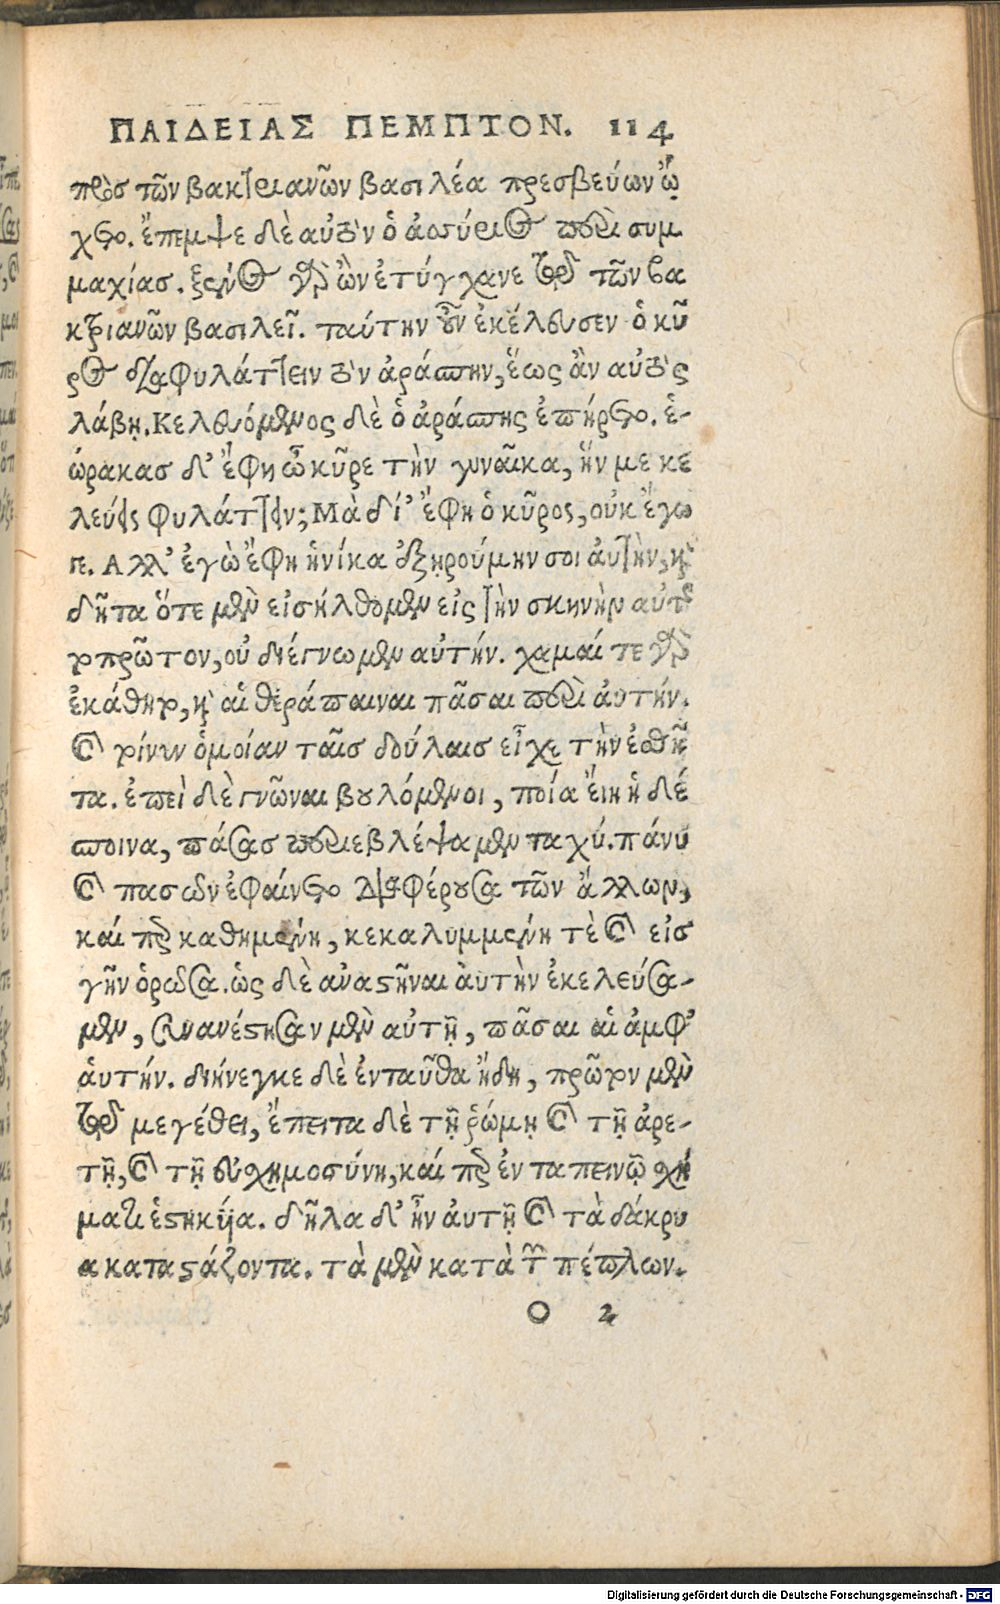 ΠΑΙΔΕΙΑΣ ΠΕΜΠΤΟΝ. 114
πρὸσ τῶν βακτριανῶν βασιλέα πρεσβεύων ᾤ
χετο. ἔπεμψε δὲ αὐτὸν ὁ ἀσσύριος περὶ συμ
μαχίασ. ξένος γὰρ ὢν ἐτύγχανε τῷ τῶν βα
κτριανῶν βασιλεῖ. ταύτην οὖν ἐκέλευσεν ὁ κῦ
ρος διαφυλάττειν τὸν ἀράσπην, ἕως ἂν αὐτὸς
λάβῃ. Κελευόμενος δὲ ὁ ἀράσπης ἐπήρετο. ἑ-
ώρακασ δ' ἔφη ὦ κῦρε τὴν γυναῖκα, ἥν με κε
λεύεις φυλάττειν; Μὰ δί' ἔφη ὁ κῦρος, οὐκ ἔγω
γε. Αλλ' ἐγὼ ἔφη ἡνίκα ἐξῃρούμην σοι ἀυτὴν, καὶ
δῆτα ὅτε μὲν εἰσήλθομεν εἰς τὴν σκηνὴν αὐτῆς
τοπρῶτον, οὐ διέγνωμεν αὐτήν. χαμαί τε γὰρ
ἐκάθητο, καὶ αἱ θεράπαιναι πᾶσαι περὶ ἀυτήν.
καὶ τοίνυν ὁμοίαν ταῖσ δούλαισ εἶχε τὴν ἐσθῆ
τα. ἐπεὶ δὲ γνῶναι βουλόμενοι, ποία ἔιη ἡ δέ
σποινα, πάσασ περιεβλέψαμεν ταχύ. πάνυ
καὶ πασῶν ἐφαίνετο διαφέρουσα τῶν ἄλλων,
καίπερ καθημένη, κεκαλυμμένη τὲ καὶ εἰσ
γῆν ὁρῶσα. ὡς δὲ ἀναστῆναι ἀυτὴν ἐκελεύσα-
μεν, συνανέστησαν μὲν αὐτῇ, πᾶσαι αἱ ἀμφ'
ἀυτήν. διήνεγκε δὲ ἐνταῦθα ἤδη, πρῶτον μὲν
τῷ μεγέθει, ἔπειτα δὲ τῇ ῥώμῃ καὶ τῇ ἀρε-
τῇ, καὶ τῇ εὐσχημοσύνη, καίπερ ἐν ταπεινῷ σχή
ματι ἑστηκυῖα. δῆλα δ' ἦν ἀυτῇ καὶ τὰ δάκρυ
α καταστάζοντα. τὰ μὲν κατὰ τῶν πέπλων.
O 2
Digitalisierung gefördert durch die Deutsche Forschungsgemeinschaft - DFG